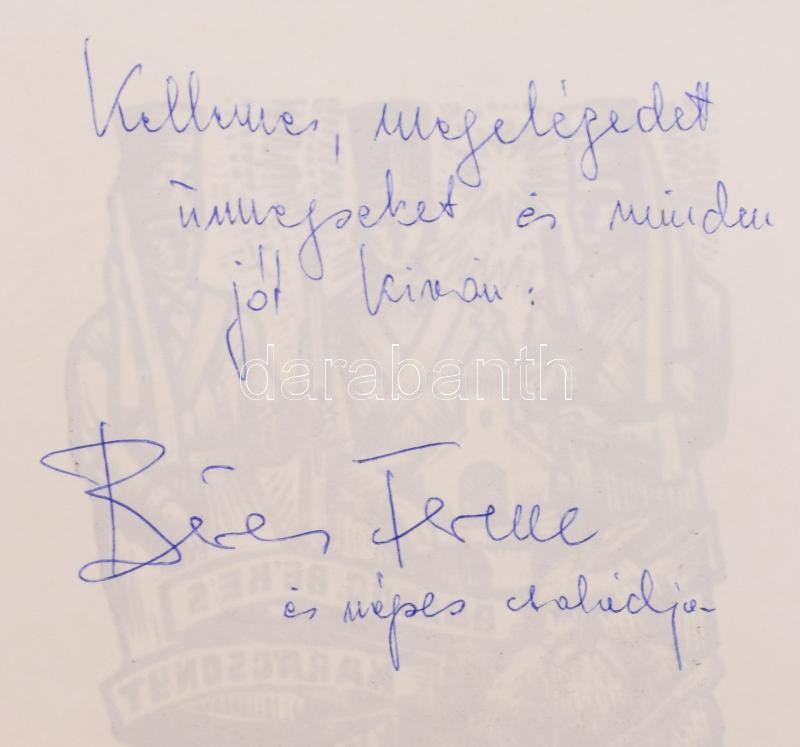 Kellemes, megelégedett
ünnepeket és minden
jót kíván:
darabanth
Béres Ferenc
és népes családja
BÉKÉS
KARÁCSONYT